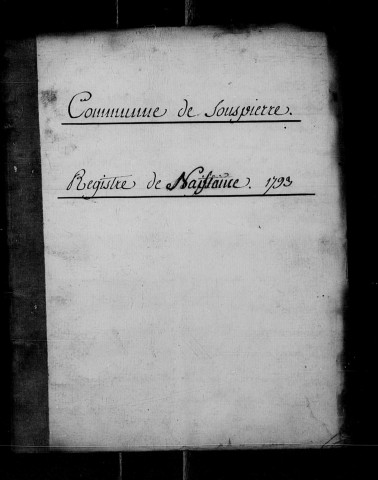 Communne de Souspierre.
Registre de Naissance. 1793